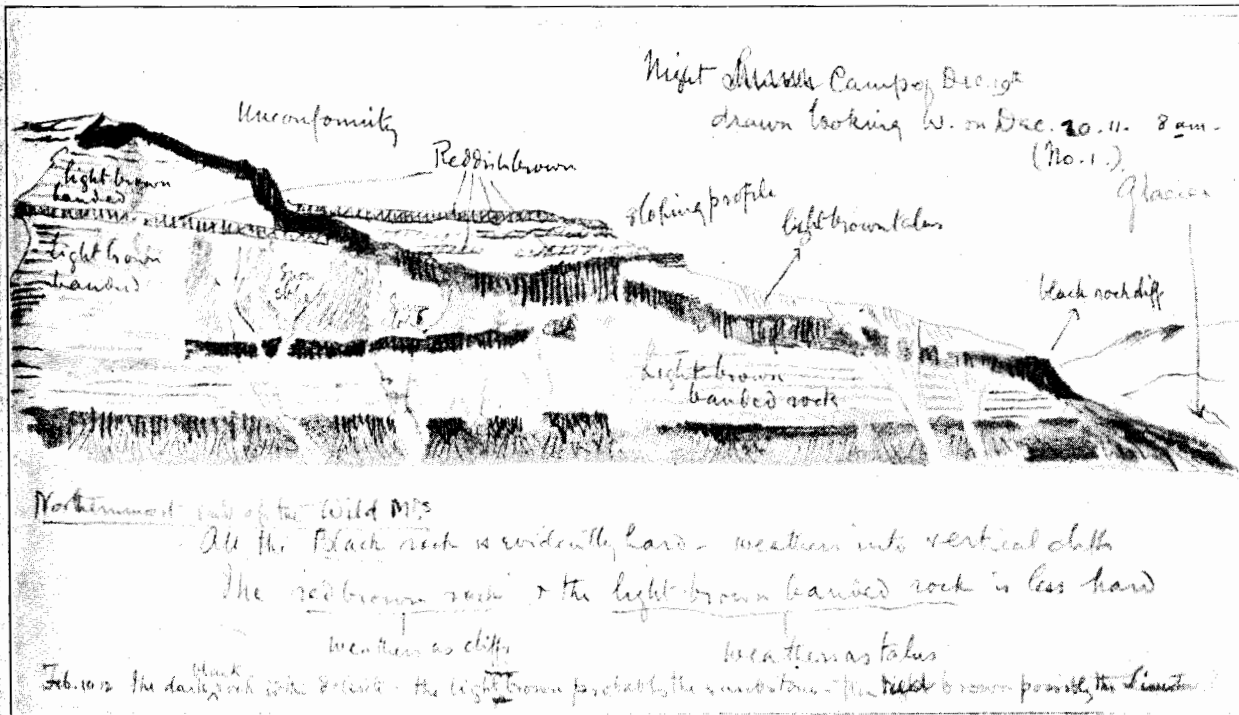 Night Camp of Dec. 19th
drawn looking W. on Dec. 20. 11. 8 am.
(No. 1.)
Unconformity
Reddish brown
Glacier
light brown
banded
sloping profile
light brown talus
light brown
banded
black rock cliff
Light brown
banded rock
Northernmost end of the Wild Mts
All the Black rock is evidently hard - weathers into vertical cliffs
The red brown rock & the light brown banded rock is less hard
weathers as cliffs
weathers as talus
black
Feb. 10 12 The dark rock is the dolerite - the light brown probably the sandstone - the brown possibly the